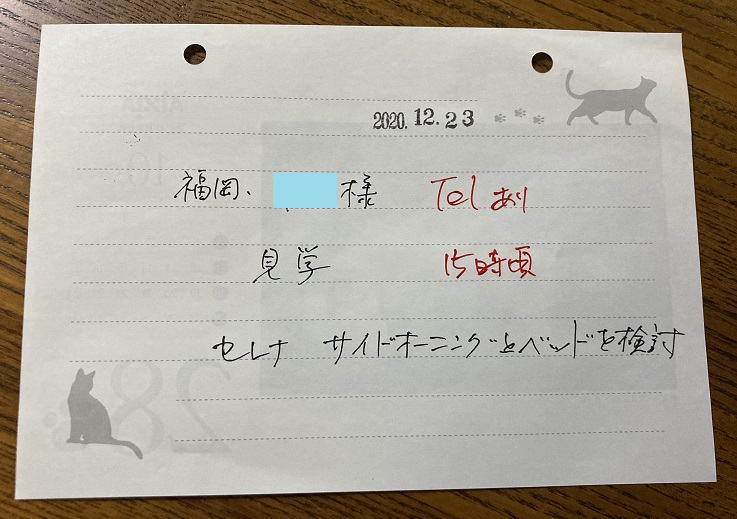 2020.12.23
福岡、 様 Tel あり
見学 15時頃
セレナ サイドオーニングとベッドを検討
28